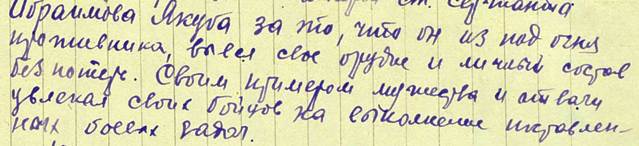 Ибраимова Якуба за то, что он из под огня
противника, вывел свое орудие и личный состав
без потерь. Своим примером мужества и отваги
увлекал своих бойцов на выполнение поставлен-
ных боевых задач.